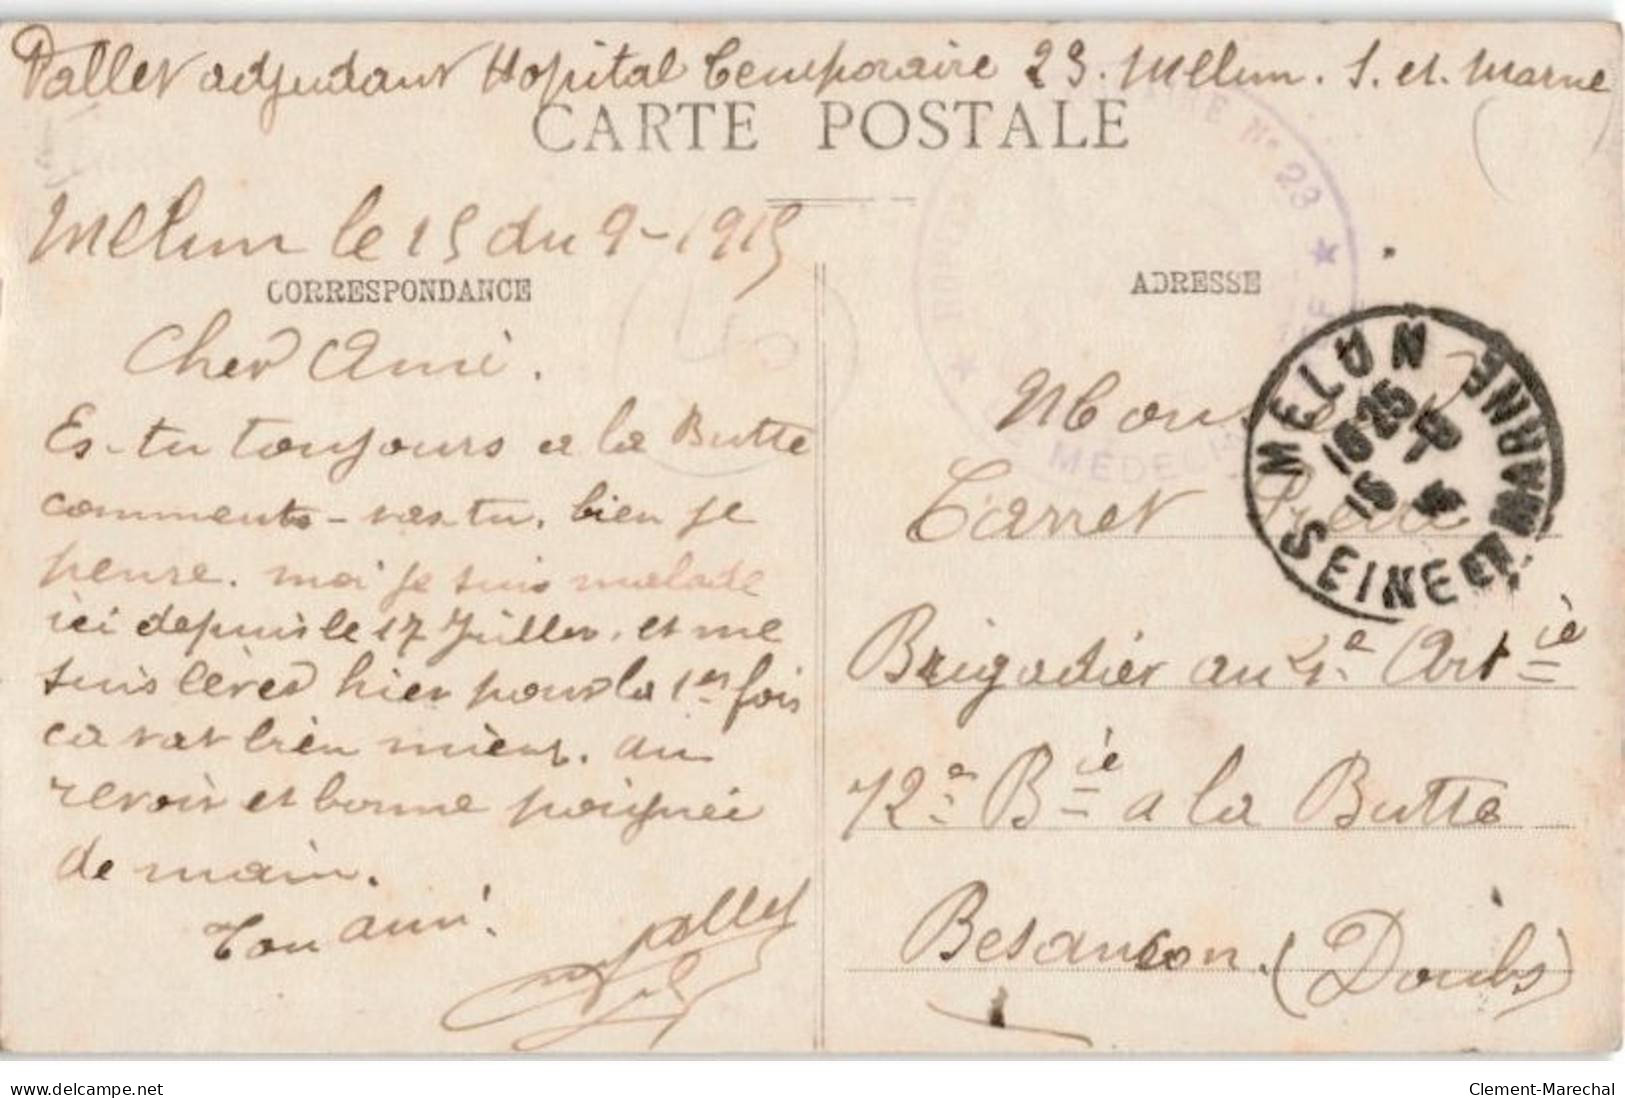 Pallet adjudant Hopital temporaire 23. Melun. S. et. Marne
CARTE POSTALE
Melun le 15 du 9-1915
CORRESPONDANCE
Cher Ami.
Es-tu toujours a la Butte
comments-vas tu. bien je
pense. moi je suis malade
ici depuis le 17 Juillet. et me
suis lever hier pour la 1er fois
ca vat bien mieux. au
revoir et bonne poignée
de main.
Ton ami.
Pallet
ADRESSE
Monsieur
Carret
Brigadier au 4e Artie
12e Bie a la Butte
Besancon. (Doubs)
MELUN
16 25
15 - 9
15
SEINE ET MARNE
AIRE No 23
MÉDECIN
www.delcampe.net
Clement-Marechal